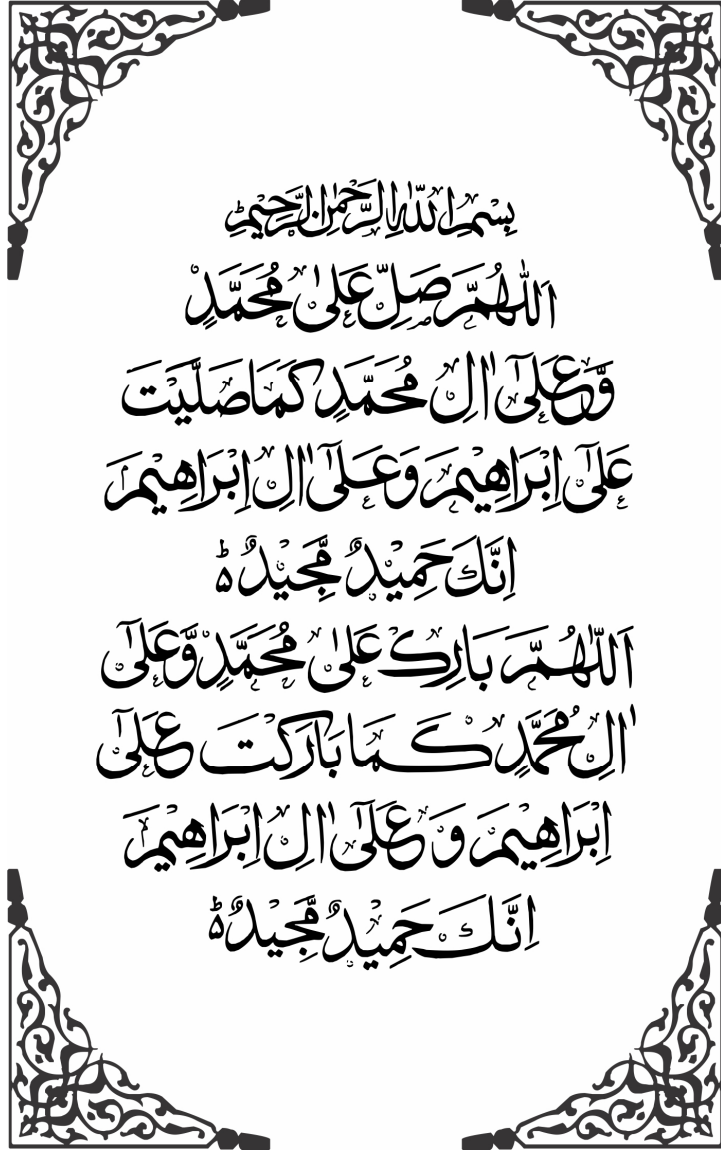 بِسْمِ اللّٰهِ الرَّحْمٰنِ الرَّحِيْمِ
اَللّٰهُمَّ صَلِّ عَلٰى مُحَمَّدٍ
وَّعَلٰٓى اٰلِ مُحَمَّدٍ كَمَا صَلَّيْتَ
عَلٰٓى اِبْرَاهِيْمَ وَعَلٰٓى اٰلِ اِبْرَاهِيْمَ
اِنَّكَ حَمِيْدٌ مَّجِيْدٌ ۵ؕ
اَللّٰهُمَّ بَارِكْ عَلٰى مُحَمَّدٍ وَّعَلٰٓى
اٰلِ مُحَمَّدٍ كَمَا بَارَكْتَ عَلٰٓى
اِبْرَاهِيْمَ وَ عَلٰٓى اٰلِ اِبْرَاهِيْمَ
اِنَّكَ حَمِيْدٌ مَّجِيْدٌ ۵ؕ